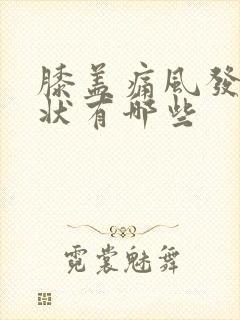 膝盖痛風發
状有哪些
霓裳魅舞